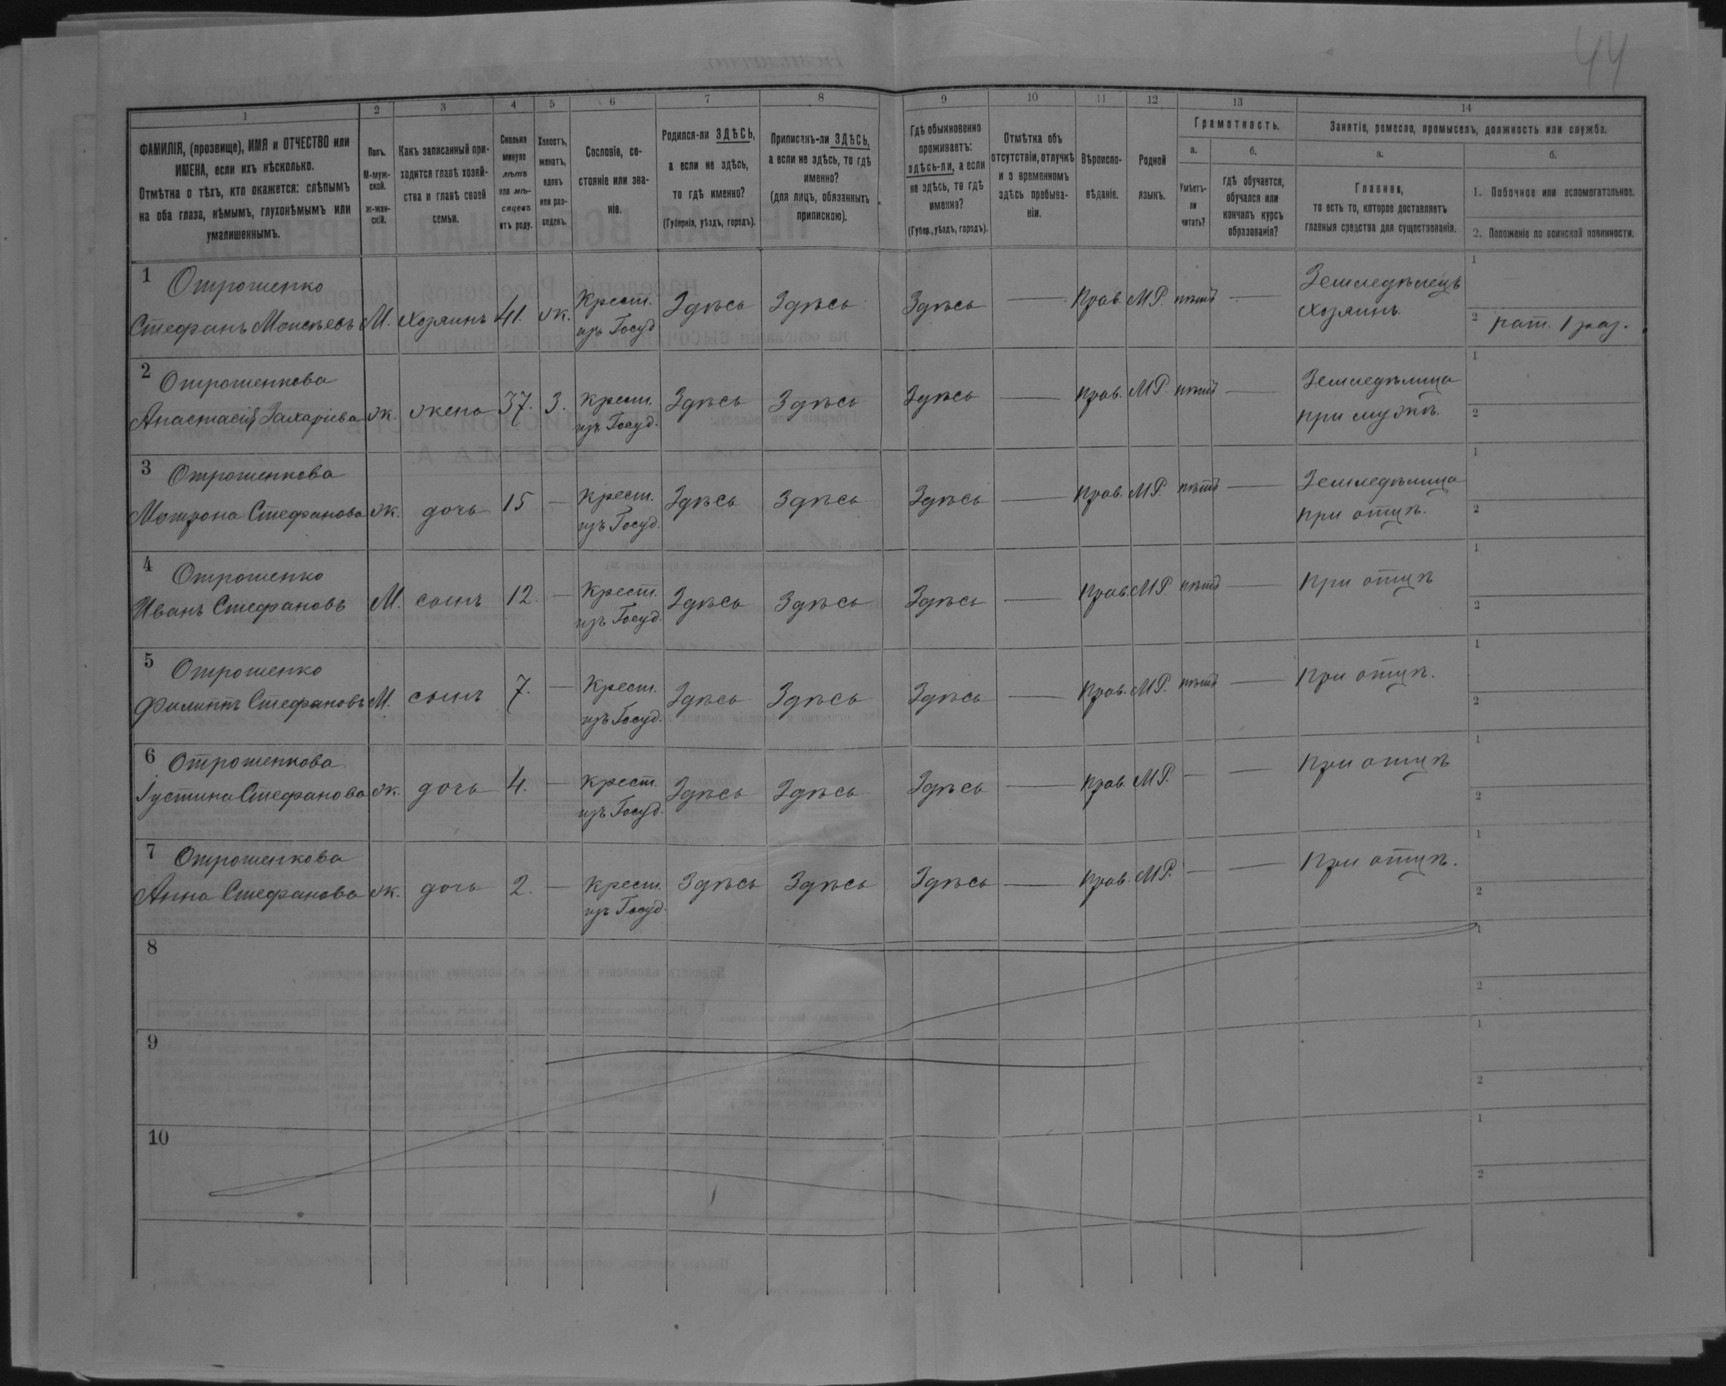 44
1 2 3 4 5 6 7 8 9 10 11 12 13 14
ФАМИЛІЯ, (прозвище), ИМЯ и ОТЧЕСТВО или
ИМЕНА, если ихъ нѣсколько.
Отмѣтка о тѣхъ, кто окажется: слѣпымъ
на оба глаза, нѣмымъ, глухонѣмымъ или
умалишеннымъ.
Полъ.
М-муж-
ской.
ж-жен-
скій.
Какъ записанный при-
ходится главѣ хозяй-
ства и главѣ своей
семьи.
Сколько
минуло
лѣтъ
или мѣ-
сяцевъ
отъ роду.
Холостъ,
женатъ,
вдовъ
или раз-
веденъ.
Сословіе, со-
стояніе или зва-
ніе.
Родился-ли ЗДѢСЬ,
а если не здѣсь,
то гдѣ именно?
(Губернія, уѣздъ, городъ).
Приписанъ-ли ЗДѢСЬ,
а если не здѣсь, то гдѣ
именно?
(для лицъ, обязанныхъ
припискою).
Гдѣ обыкновенно
проживаетъ:
здѣсь-ли, а если
не здѣсь, то гдѣ
именно?
(Губер., уѣздъ, городъ).
Отмѣтка объ
отсутствіи, отлучкѣ
и о временномъ
здѣсь пребыва-
ніи.
Вѣроиспо-
вѣданіе.
Родной
языкъ.
Грамотность.
а.
Умѣетъ-
ли
читать?
б.
гдѣ обучается,
обучался или
кончилъ курсъ
образованія?
Занятіе, ремесло, промыселъ, должность или служба.
а.
Главное,
то есть то, которое доставляетъ
главныя средства для существованія.
б.
1. Побочное или вспомогательное.
2. Положеніе по воинской повинности.
1 Отрошенко Крест. Земледѣлецъ 1
Стефанъ Моисѣевъ М. хозяинъ 41. ж. изъ Госуд Здѣсь Здѣсь Здѣсь — Прав. МР. нѣтъ — хозяинъ. 2 рат. 1 раз.
2 Отрошенкова Крест. Земледѣлица 1
Анастасія Захаріева ж. жена 37. З. изъ Госуд. Здѣсь Здѣсь Здѣсь — Прав. МР. нѣтъ — при мужѣ. 2
3 Отрошенкова Крест. Земледѣлица 1
Мотрона Стефанова ж. дочь 15 — изъ Госуд. Здѣсь Здѣсь Здѣсь — Прав. МР. нѣтъ — при отцѣ. 2
4 Отрошенко Крест. 1
Иванъ Стефановъ М. сынъ 12. — изъ Госуд. Здѣсь Здѣсь Здѣсь — Прав. МР. нѣтъ — При отцѣ 2
5 Отрошенко Крест. 1
Филиппъ Стефановъ М. сынъ 7. — изъ Госуд. Здѣсь Здѣсь Здѣсь — Прав. МР. нѣтъ — При отцѣ. 2
6 Отрошенкова Крест. 1
Іустина Стефанова ж. дочь 4. — изъ Госуд. Здѣсь Здѣсь Здѣсь — Прав. МР. — — При отцѣ 2
7 Отрошенкова Крест. 1
Анна Стефанова ж. дочь 2. — изъ Госуд. Здѣсь Здѣсь Здѣсь — Прав. МР. — — При отцѣ. 2
8 1
2
9 1
2
10 1
2